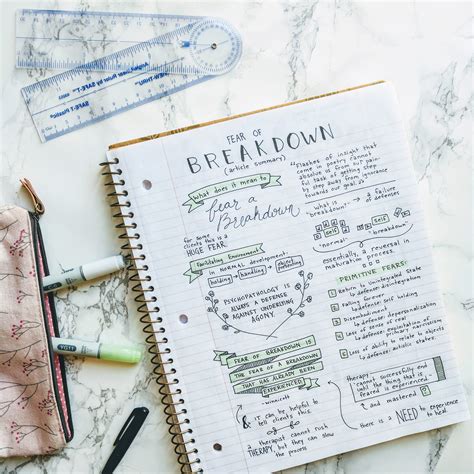 FEAR OF
BREAKDOWN
(article summary)
what does it mean to
fear a
Breakdown
for some
clients this is a
HUGE FEAR
Facilitating Environment
in NORMAL development:
holding
handling
object
presenting
PSYCHOPATHOLOGY IS
ALWAYS A DEFENSE
AGAINST UNDERLYING
AGONY
FEAR OF BREAKDOWN IS
THE FEAR OF A BREAKDOWN
THAT HAS ALREADY BEEN
EXPERIENCED
&
it can be helpful to
tell clients this
a therapist cannot RUSH
therapy, but they can slow
the process
"Flashes of insight that
come in poetry cannot
absolve us from our pain-
ful task of getting step
by step away from ignorance
towards our goal."
what is
"breakdown"
a failure
of defenses
self
self
"normal"
"breakdown"
essentially, a reversal in
maturation process
PRIMITIVE FEARS:
Return to Unintegrated State
(defense: disintegration)
Falling forever
(defense: self-holding)
Disembodiment
(defense: depersonalization)
Loss of sense of real
(defense: primary narcissism)
Loss of capacity to relate to objects
(defense: autistic states)
therapy
cannot successfully end
until the thing that is
feared is experienced
and mastered
there is a NEED to experience
to heal